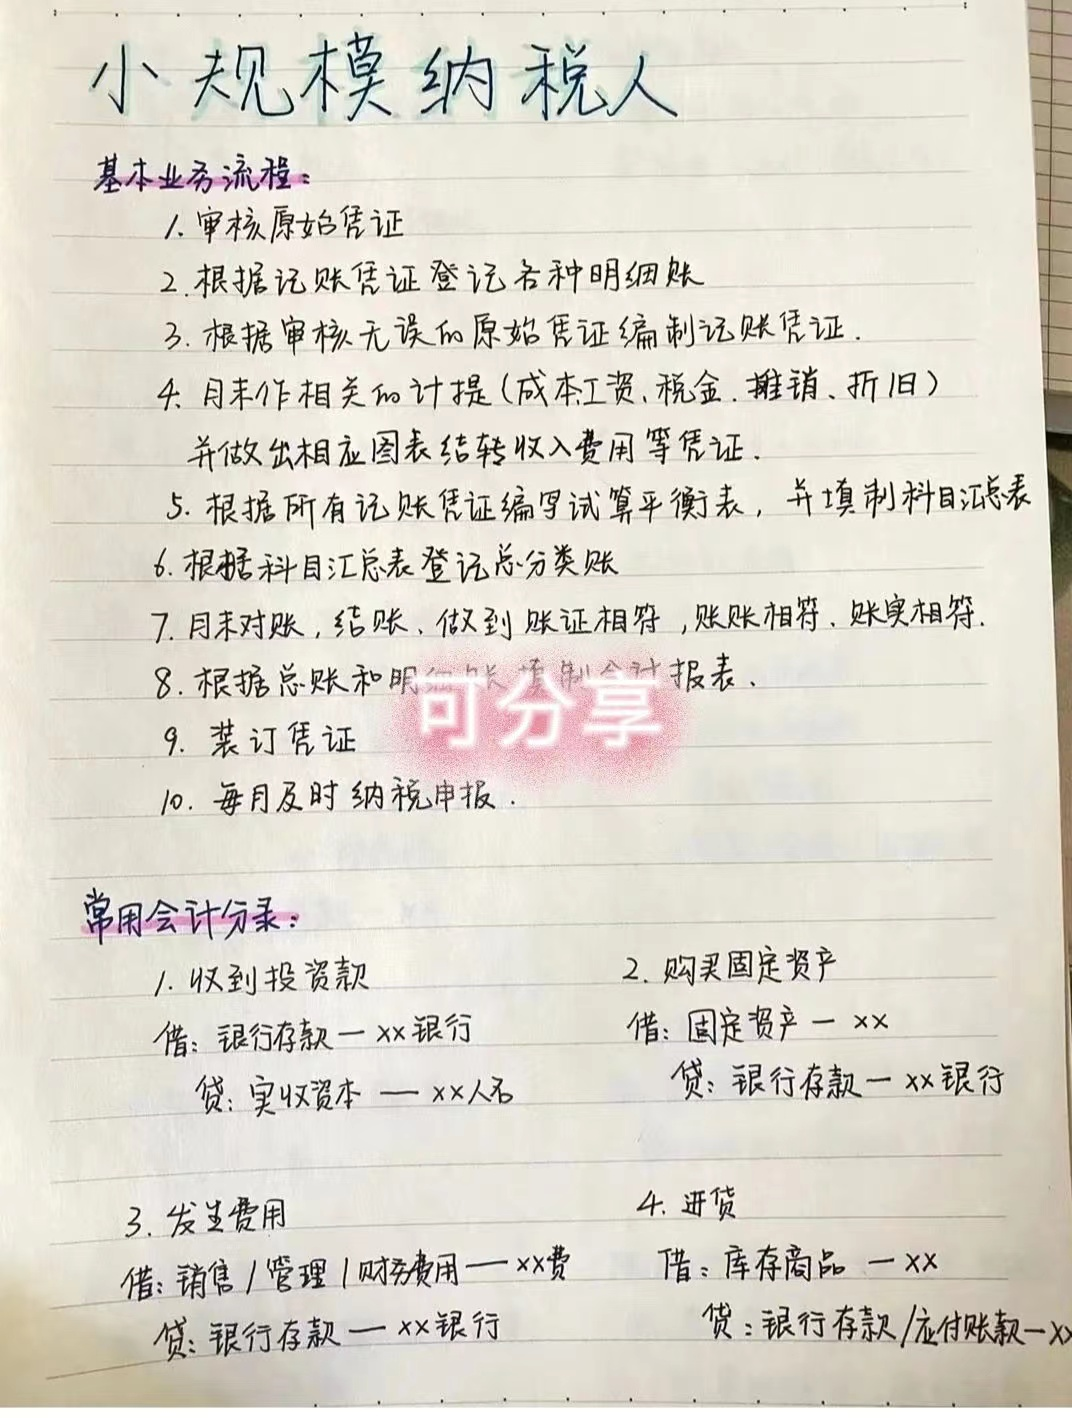 小规模纳税人
基本业务流程：
1. 审核原始凭证
2. 根据记账凭证登记各种明细账
3. 根据审核无误的原始凭证编制记账凭证.
4. 月末作相关的计提（成本工资、税金、摊销、折旧）
并做出相应图表结转收入费用等凭证.
5. 根据所有记账凭证编写试算平衡表，并填制科目汇总表
6. 根据科目汇总表登记总分类账
7. 月末对账，结账、做到账证相符，账账相符、账实相符.
8. 根据总账和明细账填制会计报表.
可分享
9. 装订凭证
10. 每月及时纳税申报.
常用会计分录：
1. 收到投资款
借：银行存款一xx银行
贷：实收资本 — xx人名
2. 购买固定资产
借：固定资产 — xx
贷：银行存款一xx银行
3. 发生费用
借：销售/管理/财务费用—xx费
贷：银行存款—xx银行
4. 进货
借：库存商品 —xx
贷：银行存款/应付账款—xx